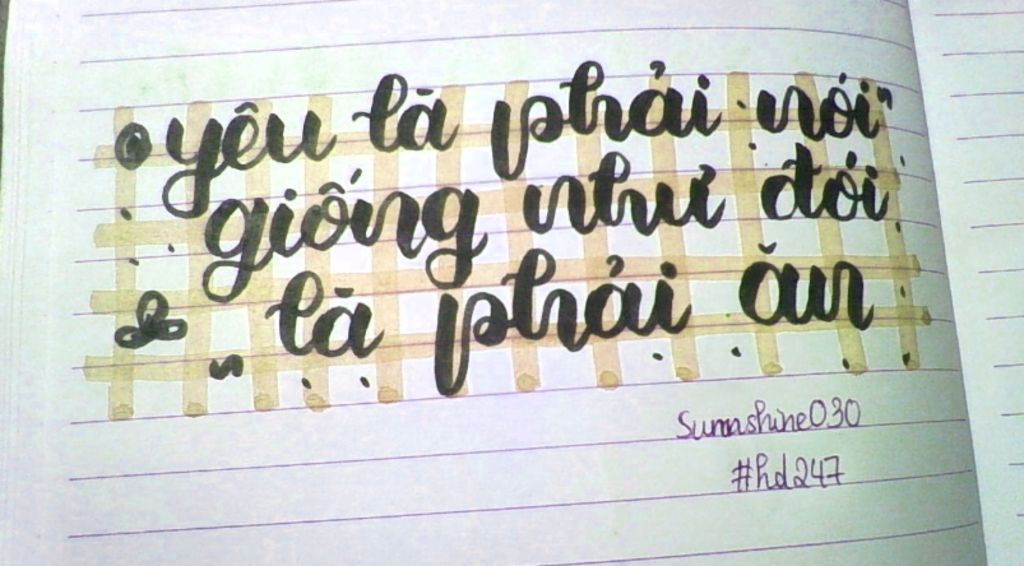 yêu là phải nói"
giống như đói
" là phải ăn
Sunnshine030
#hd247